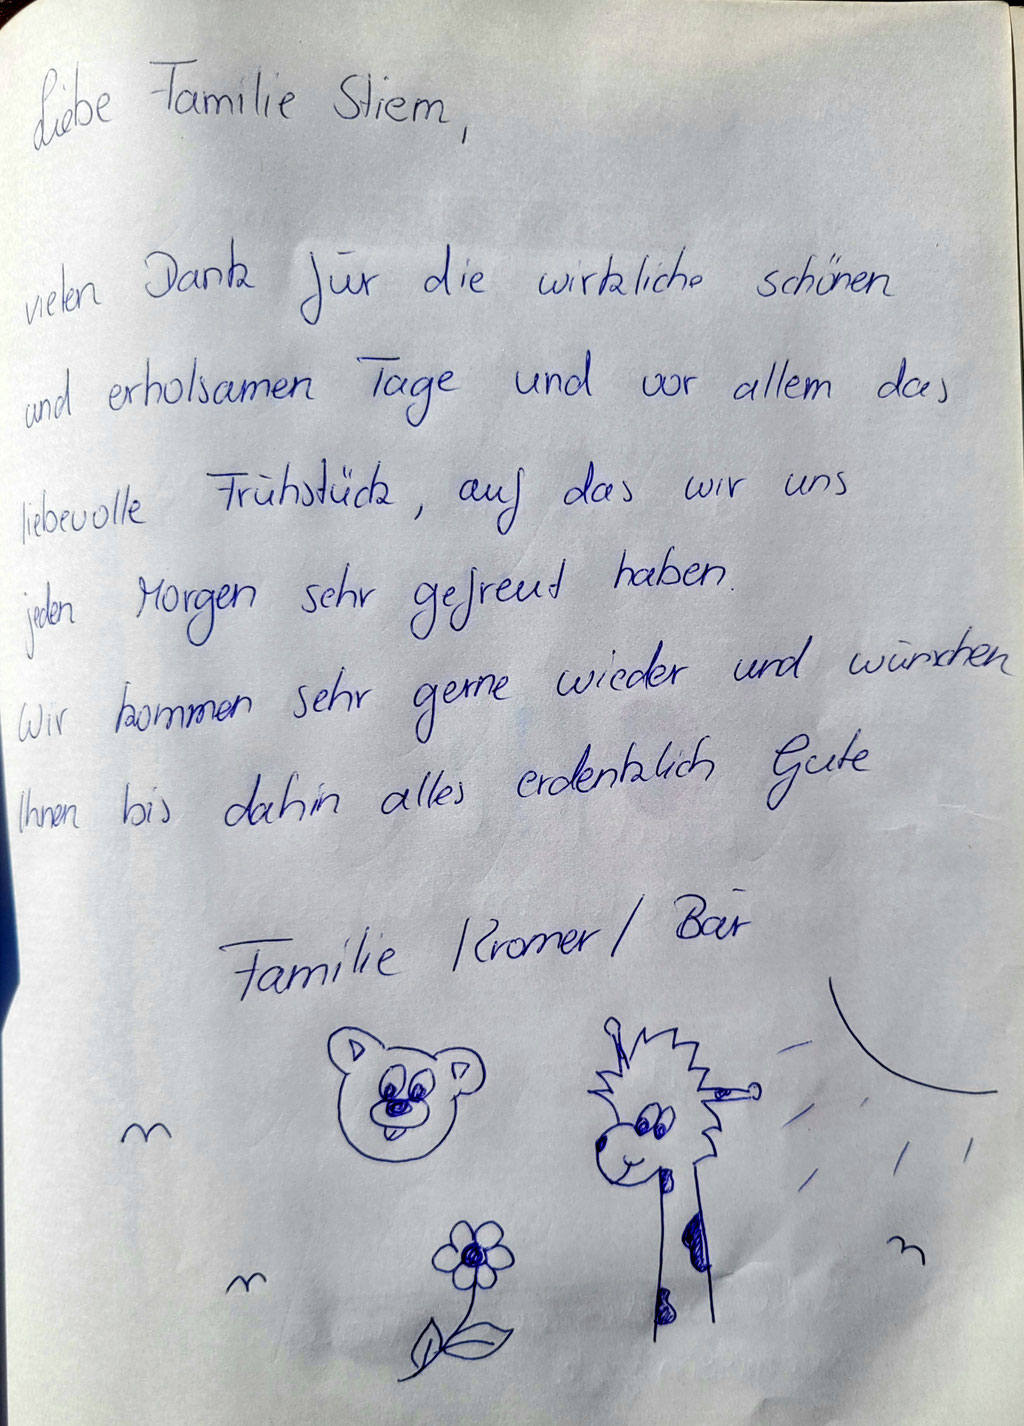 Liebe Familie Stiem,
vielen Dank für die wirkliche schönen
und erholsamen Tage und vor allem das
liebevolle Frühstück, auf das wir uns
jeden Morgen sehr gefreut haben.
Wir kommen sehr gerne wieder und wünschen
Ihnen bis dahin alles erdenklich Gute
Familie Kromer / Bär